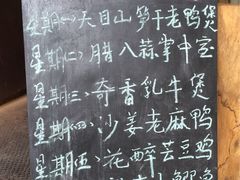 星期(一)天目山笋干老鸭煲
星期(二)腊八蒜掌中宝
星期(三)奇香乳牛煲
星期(四)沙姜老麻鸭
星期(五)花醉芸豆鸡